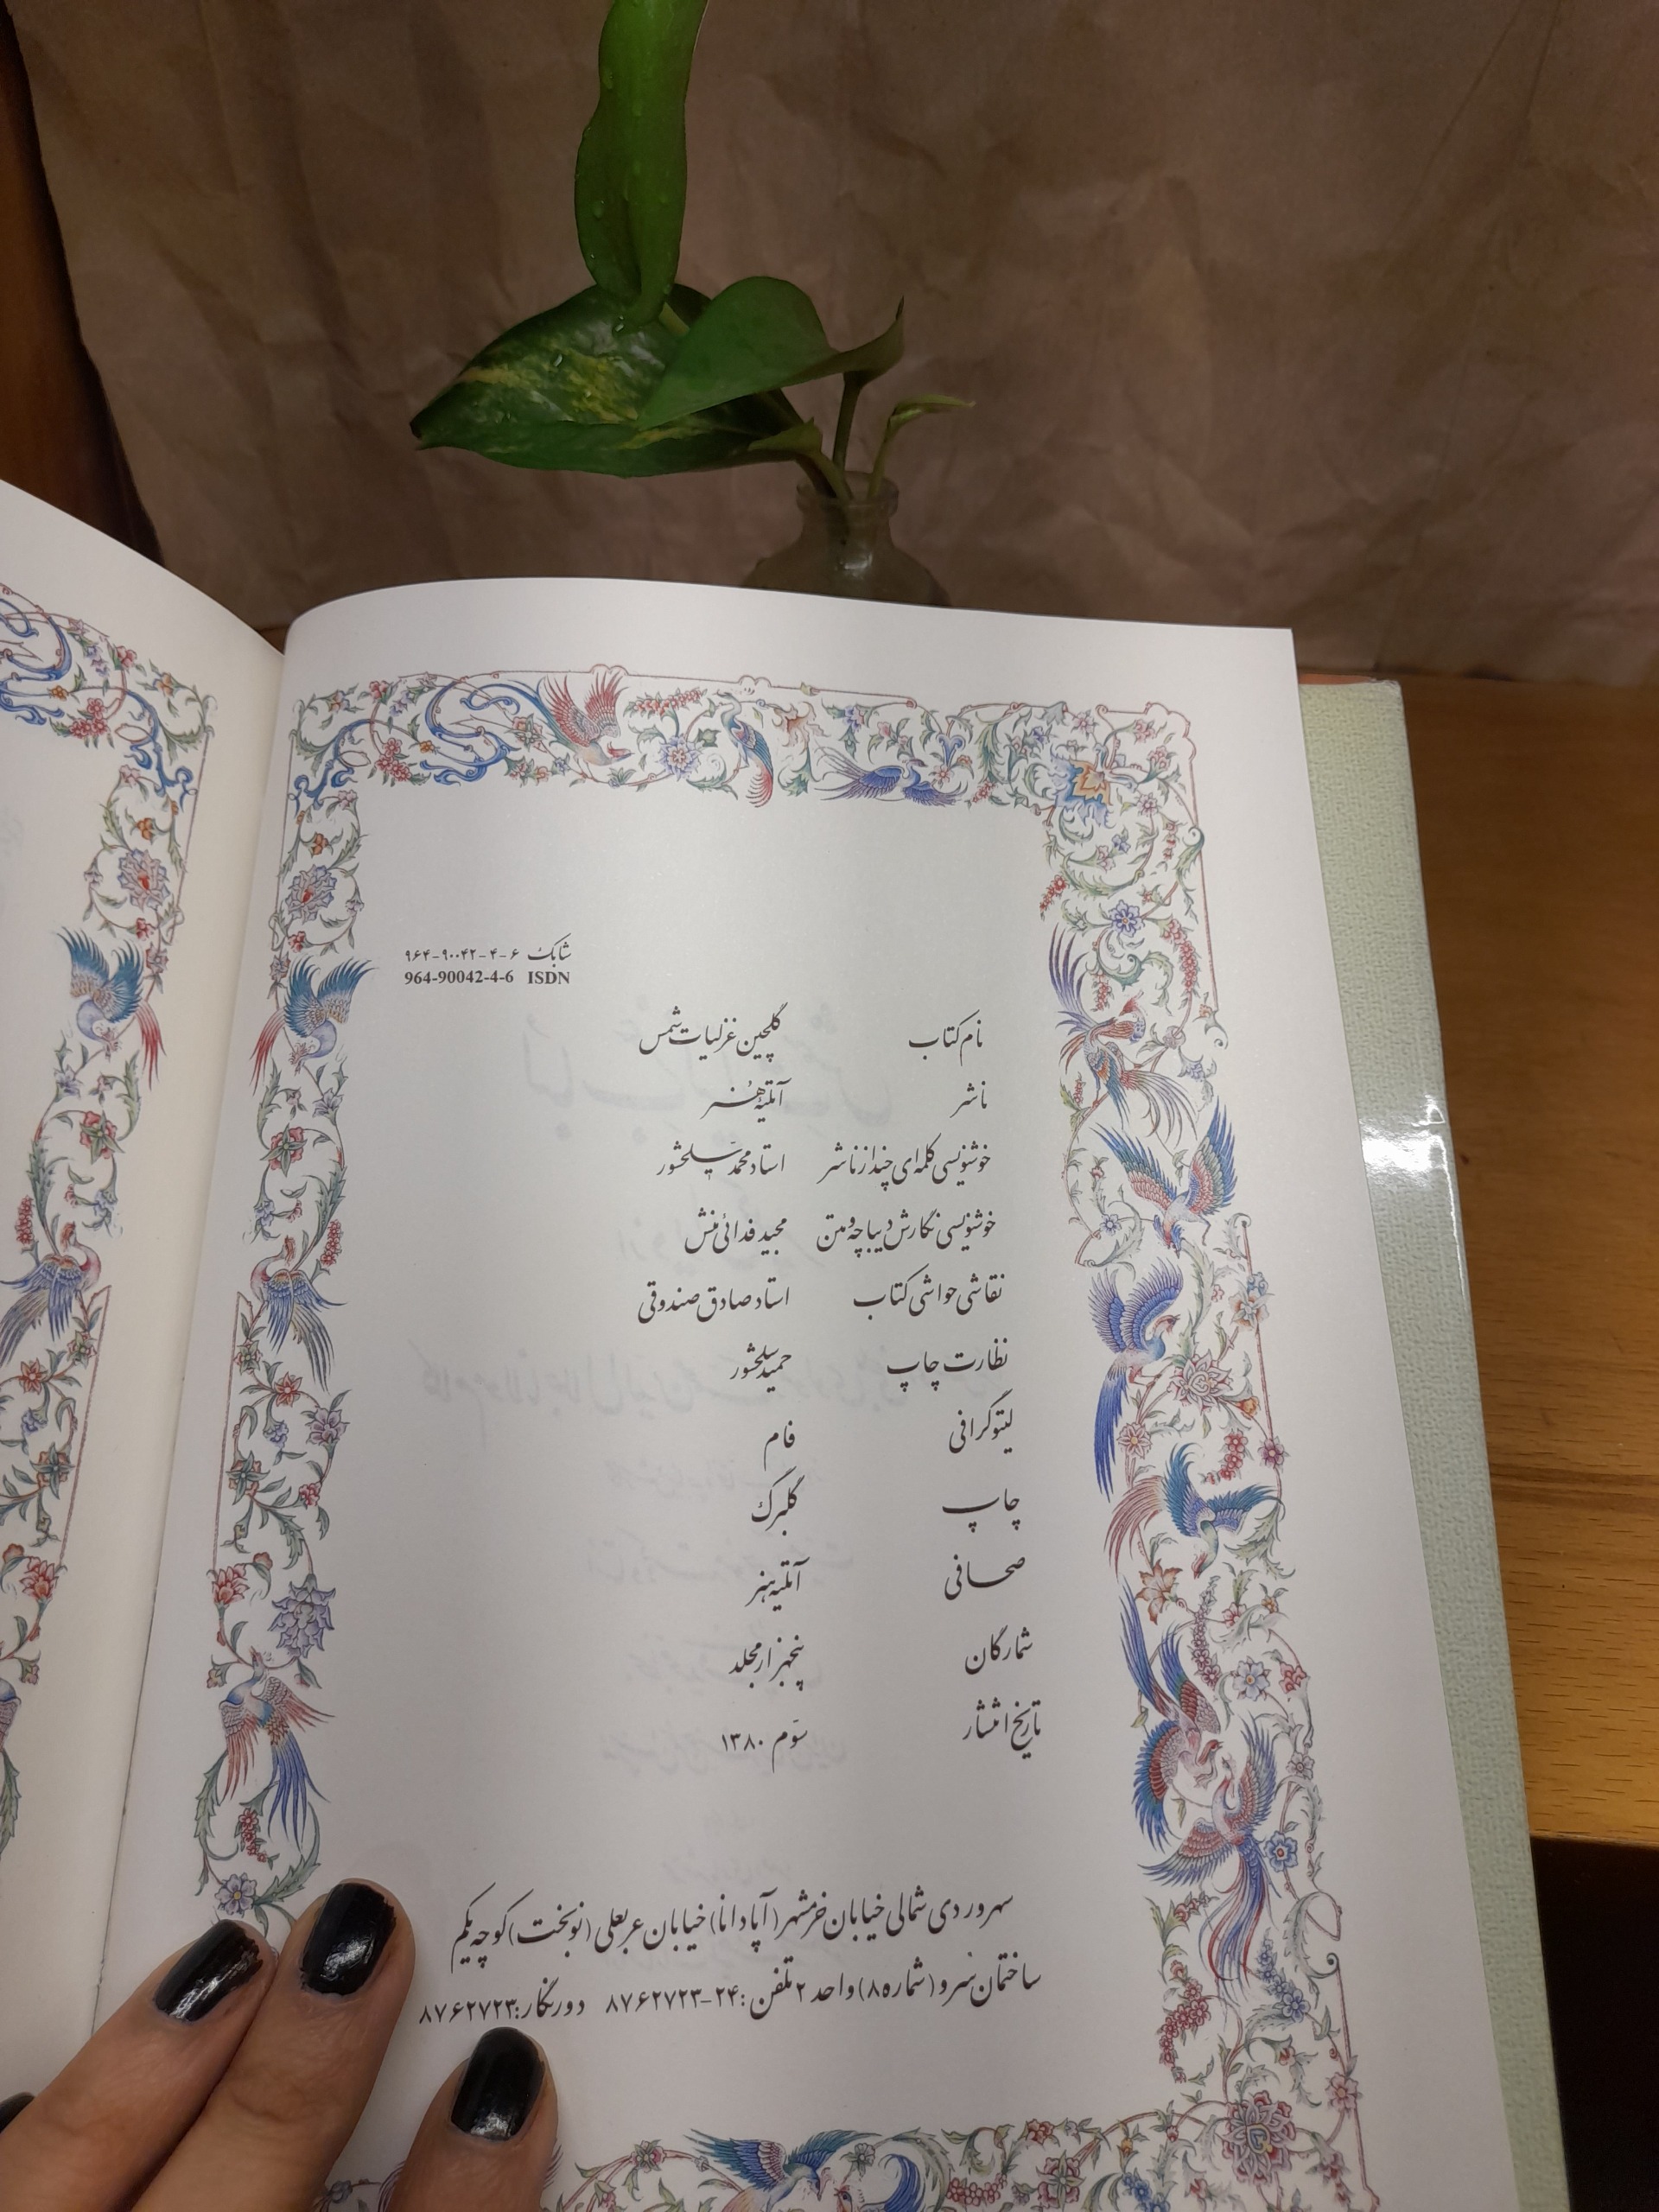 شابک ۶-۴-۹۰۰۴۲-۹۶۴
964-90042-4-6 ISDN
نام کتاب گلچین غزلیات شمس
ناشر آتلیه هنر
خوشنویسی کلمه‌ای چند از ناشر استاد محمد سلحشور
خوشنویسی نگارش دیباچه و متن مجید فدائی منش
نقاشی حواشی کتاب استاد صادق صندوقی
نظارت چاپ حمید سلحشور
لیتوگرافی فام
چاپ گلبرگ
صحافی آتلیه هنر
شمارگان پنجهزار مجلد
تاریخ انتشار سوّم ۱۳۸۰
سهروردی شمالی خیابان خرمشهر (آپادانا) خیابان عربعلی (نوبخت) کوچه یکم
ساختمان سرو (شماره ۸) واحد ۲ تلفن: ۲۴-۸۷۶۲۷۲۳ دورنگار: ۸۷۶۲۷۲۳